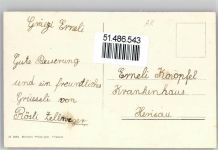 Gruezi Erneli
51.486.543
Gute Besserung
und ein freundliches
Grüessli von
Rösti Zellweger
Erneli Knöpfel
Krankenhaus
Herisau